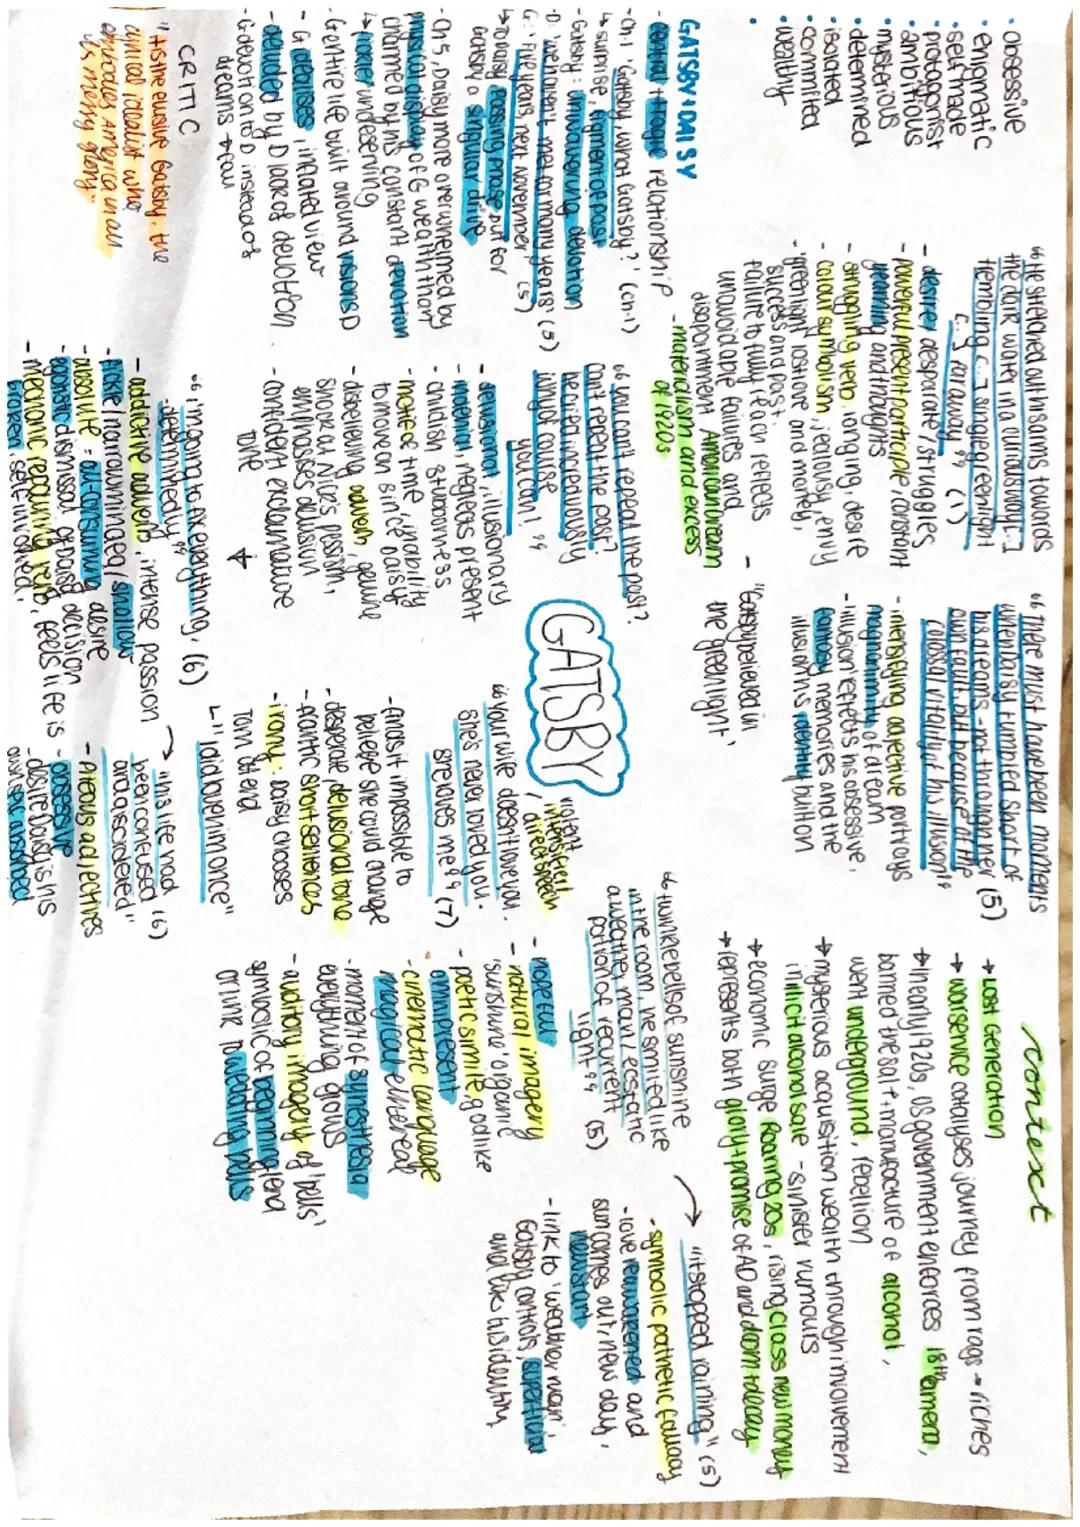 · obsessive
· enigmatic
· self made
· protagonist
· ambitious
· mysterious
· determined
· isolated
· committed
· wealthy
"He stretched out his arms towards
the dark water in a curious way [..]
trembling [..] single green light
[..] far away" (1)
- desire, desparate / struggles
- powerful present participle, constant
yearning and thoughts
- struggling verb, longing, desire
- colour symbolism, jealousy, envy
'green light' restore and money,
success and past.
failure to fully reach reflects
unavoidable failures and
disapointment American Dream
- materialism and excess
of 1920s
"There must have been moments
when daisy tumbled short of
his dreams - not through her (5)
own fault but because of the
colossal vitality of his illusion"
- intensifying adjective portrays
magnanimity of dream
- illusion reflects his obsessive,
fantasy memories and the
illusion his identity built on
- "Gatsby believed in
the green light"
context
→ Lost Generation
→ war service catalyses journey from rags → riches
→ In early 1920s, US government enforces 18th amend,
banned the sale + manufacture of alcohol,
went underground, rebellion
→ mysterious acquisition wealth through involvement
in illicit alcohol sale - sinister rumours
→ economic surge Roaring 20s, rising class new money
→ represents both glory + promise of AD and doom + decay
GATSBY + DAISY
- central + tragic relationship
- Ch.1 'Gatsby, what Gatsby?' (ch.1)
↳ surprise, figment of past
- Gatsby: unwavering devotion
- D: 'we haven't met for many years' (5)
G: 'Five years next november' (5)
↳ To Daisy passing phase but for
Gatsby a singular drive
- Ch 5, Daisy more overwhelmed by
physical display of G wealth than
charmed by his constant devotion
↳ proves undeserving
- G entire life built around visions D
- G idealises, inflated view
- deluded by D lack of devotion
- G devotion to D instead of
dreams → fall
CRITIC
"tis the elusive Gatsby, the
cynical idealist who
embodies America in all
its messy glory"
"you can't repeat the past?
Can't repeat the past?
he cried incredulously
why of course
you can!"
- delusional, illusionary
- idealist, rejects present
- childish stubborness
- motif of time, inability
to move on since Daisy
- disbelieving adverb, genuine
shock at Nick's pessism,
emphasises delusion
- confident exclamative
tone
GATSBY
"I'm going to fix everything, (6)
determinedly"
- adjective adverb, intense passion
- fickle / narrowminded / shallow
- absolute = all-consuming desire
- egoistic dismissal of Daisy decision
- melancholic recurring verb, feels life is
frozen, self-inflicted,
violent
intensifier,
direct speech
"your wife doesn't love you.
She's never loved you.
she loves me" (7)
- finds it impossible to
believe she could change
- desperate, delusional tone
- frantic short sentences
- irony - Daisy chooses
Tom at end
↳ "I did love him once"
→ "his life had
been confused (6)
and disordered"
- Piteous adjectives
- obsessive
- desire Daisy is his
own self absorbed
"twinkle bells of sunshine
in the room, he smiled like
a weather man / ecstatic
patron of recurrent
light" (5)
- hopeful
- natural imagery
'sunshine' organic
- poetic simile, godlike
omnipresent
- cinematic language
magical ethereal
- moment of synesthesia
everything grows
- auditory imagery of 'bells'
symbolic of beginning/end
or link to wedding bells
→ "it stopped raining" (5)
- symbolic pathetic fallacy
- love reawakened and
sun comes out, new day,
new start
- link to 'weather man'
Gatsby controls, superficial
and like his identity